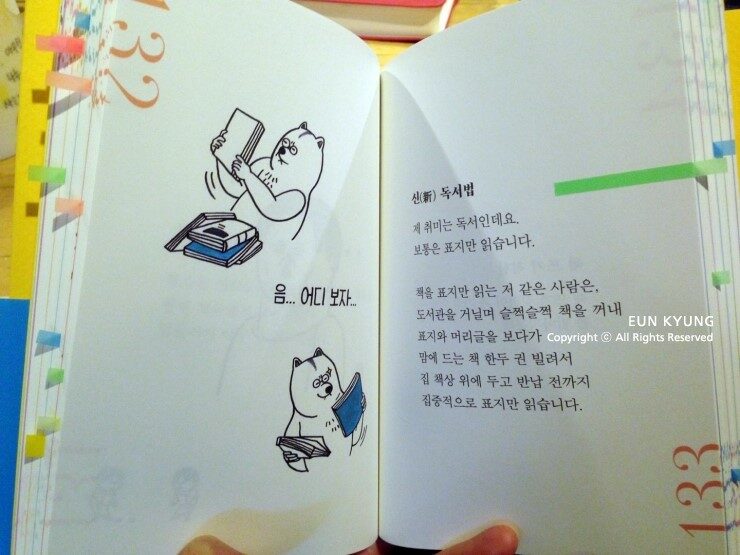 132
음... 어디 보자...
신(新) 독서법
제 취미는 독서인데요.
보통은 표지만 읽습니다.
책을 표지만 읽는 저 같은 사람은,
도서관을 거닐며 슬쩍슬쩍 책을 꺼내
표지와 머리글을 보다가
맘에 드는 책 한두 권 빌려서
집 책상 위에 두고 반납 전까지
집중적으로 표지만 읽습니다.
EUN KYUNG
Copyright ⓒ All Rights Reserved
133